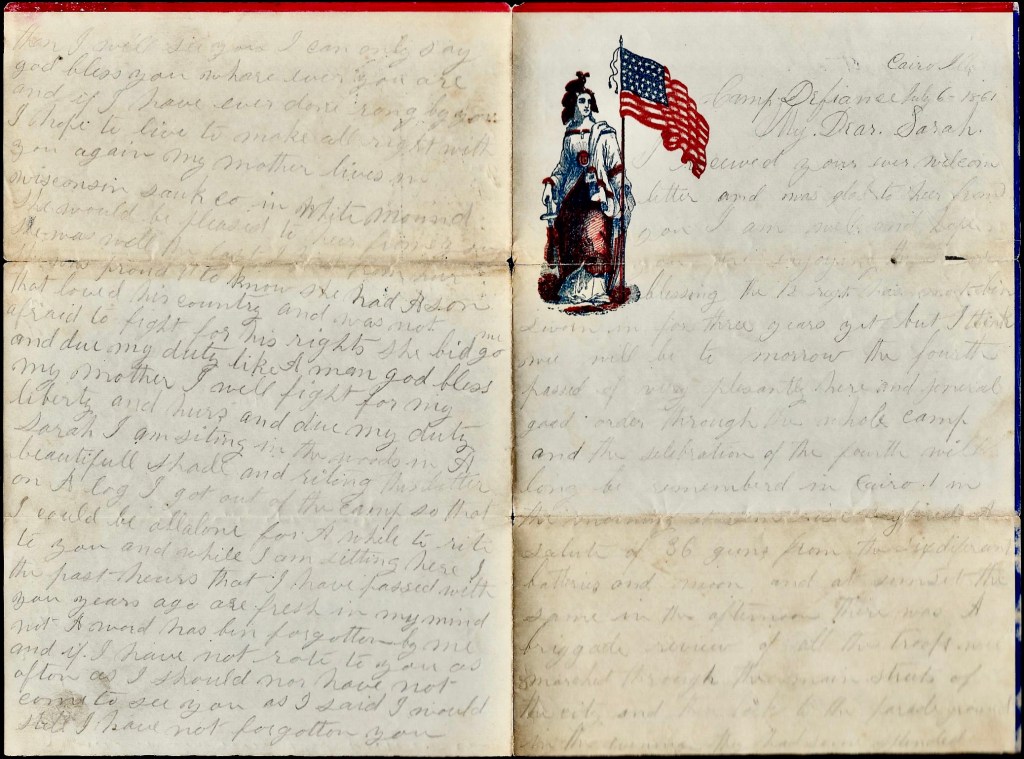 Cairo Ills
Camp Defiance July 6 - 1861
My. Dear. Sarah.
I received yours ever welcom
letter and was glad to heer from
you I am well and hope
you
blessing the 12 regt has not bin
sworn in for three years yet but I think
we will be to morrow the fourth
passed of very plesantly here and jeneral
good order through the whole camp
and the selebration of the fourth will
long be rememberd in Cairo in
the morning at sunrise they fired A
salute of 36 guns from the six diferant
batteries and noon and at sunset the
same in the afternoon There was A
briggade review of all the troops we
marched through the main streets of
the city and then back to the parade ground
in the evening the
then I well see you I can only say
god bless you whare ever you are
and if I have ever done rong by you
I hope to live to make all right with
you again my mother lives in
wisconsin sauk co in White Mound
she would be pleased to heer from
she was well
was proud to know she had A son
that loved his country and was not
afraid to fight for his rights she bid me go
and due my duty like A man god bless
my mother I well fight for my
liberty and hurs and due my duty
Sarah I am siting in the woods in A
beautifull shade and riting this letter
on A log I got out of the Camp so that
I could be all alone for A while to rite
to you and while I am sitting here I
the past hours that I have passed with
you years ago are fresh in my mind
not A word has bin forgotton by me
and if I have not rote to you as
often as I should nor have not
come to see you as I said I would
still I have not forgotton you